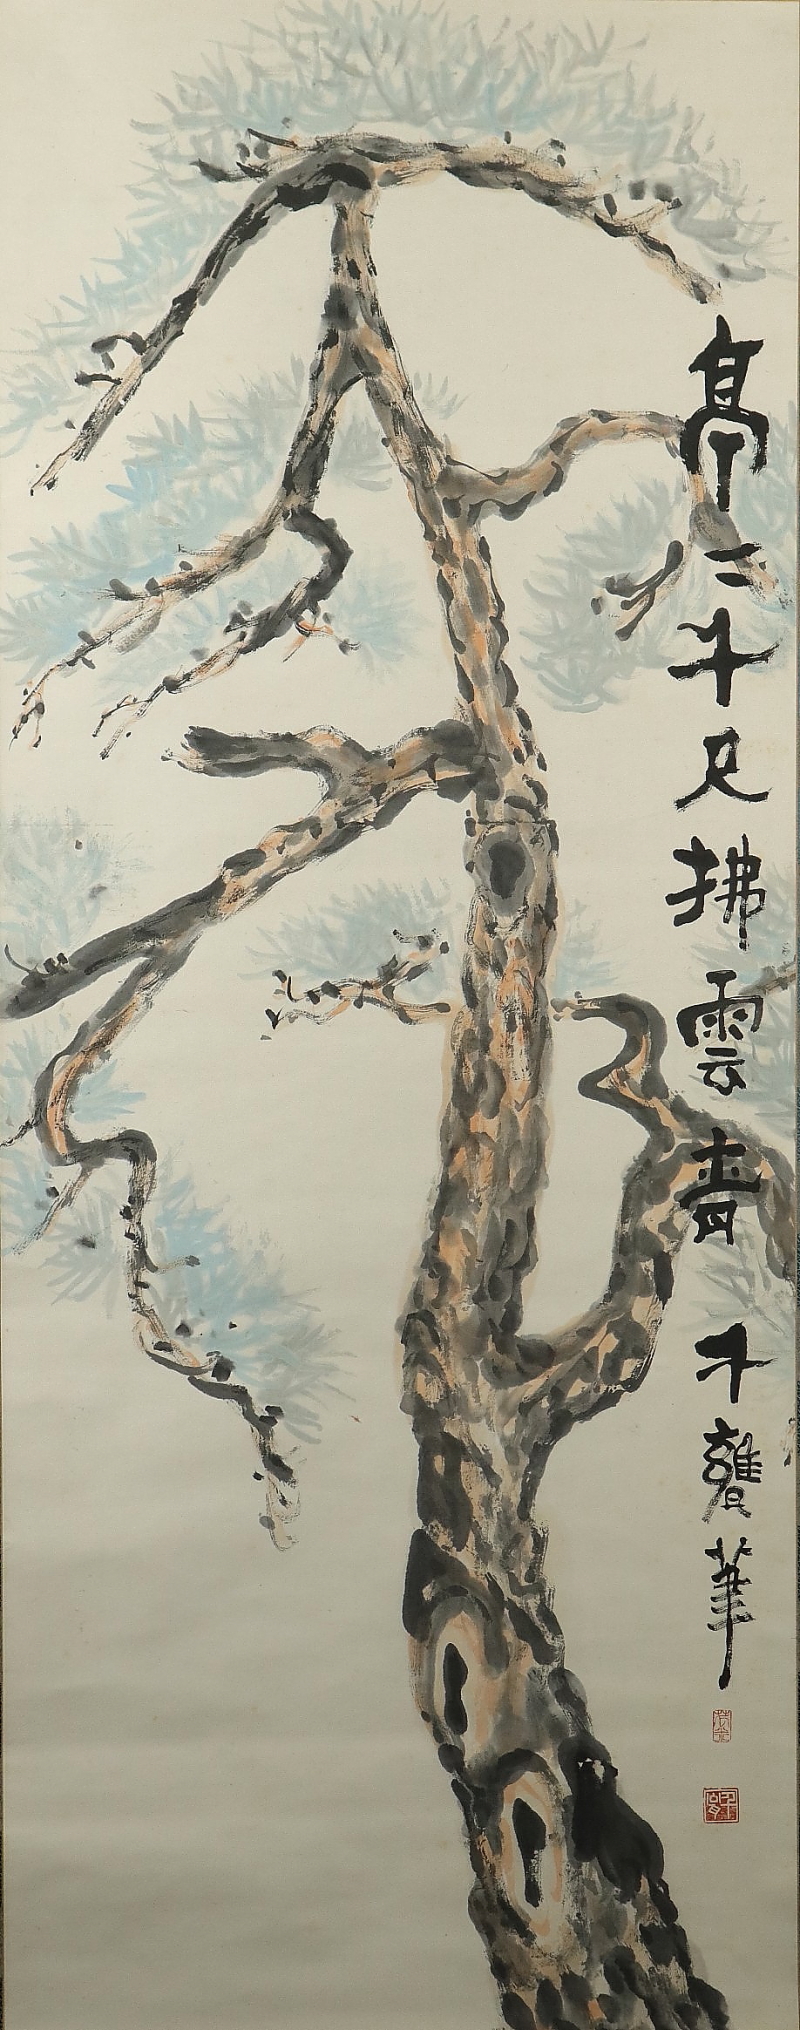 亭二千尺拂雲青 千甕筆